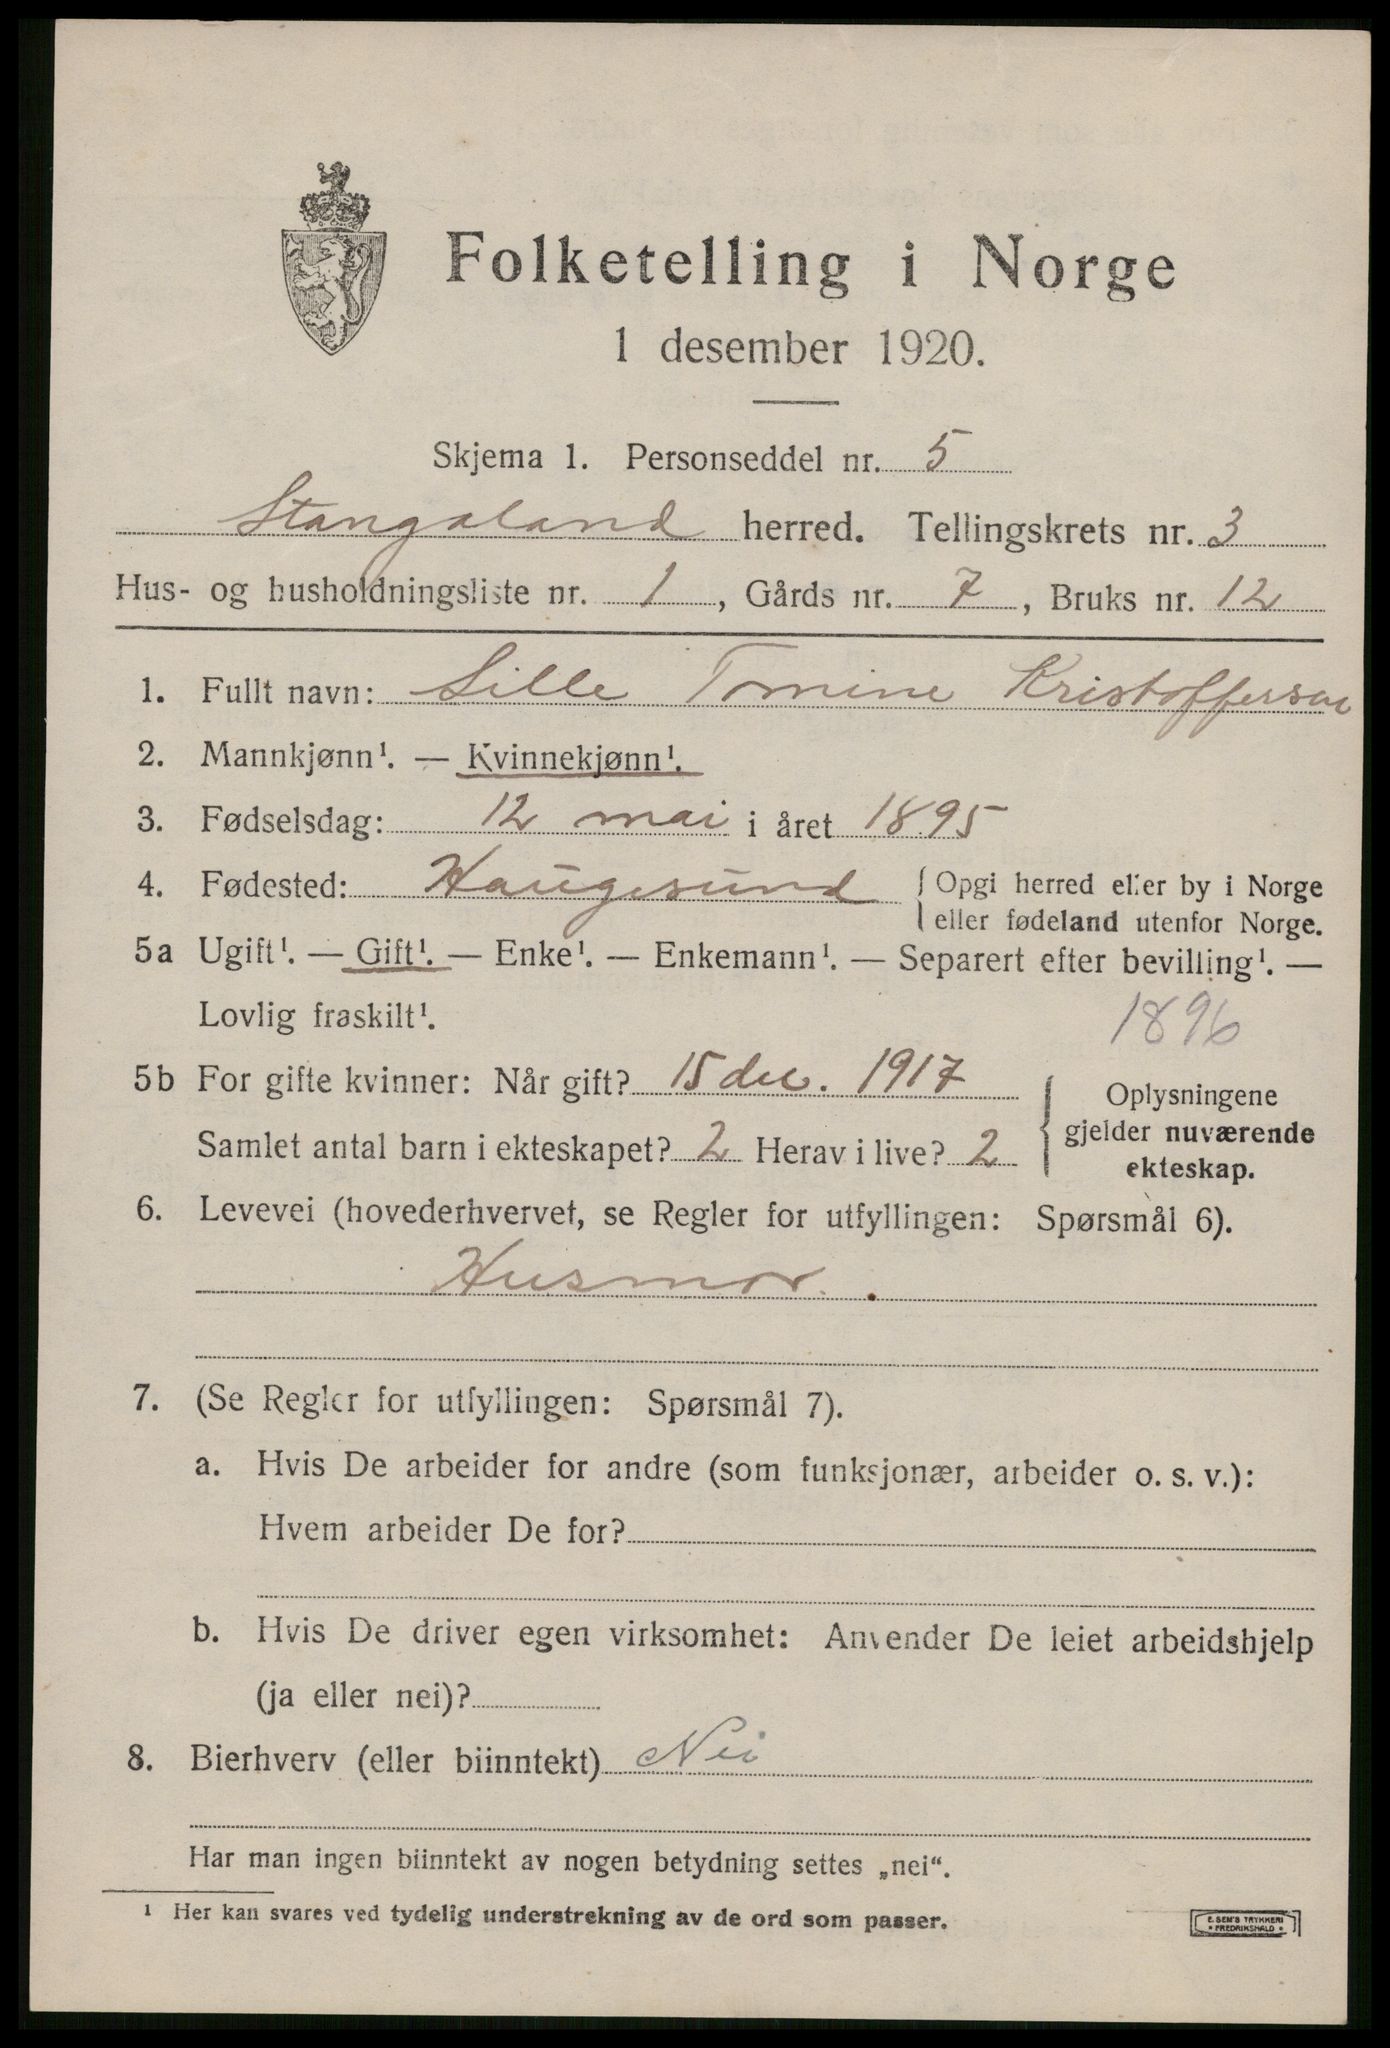 Folketelling i Norge
1 desember 1920.
Skjema 1. Personseddel nr. 5
Stangaland herred. Tellingskrets nr. 3
Hus- og husholdningsliste nr. 1, Gårds nr. 7, Bruks nr. 12
1. Fullt navn: Sille Tomine Kristoffersen
2. Mannkjønn¹. — Kvinnekjønn¹.
3. Fødselsdag: 12 mai i året 1895
4. Fødested: Haugesund { Opgi herred eller by i Norge
eller fødeland utenfor Norge.
5a Ugift¹. — Gift¹. — Enke¹. — Enkemann¹. — Separert efter bevilling¹. —
Lovlig fraskilt¹. 1896
5b For gifte kvinner: Når gift? 15 dec. 1917
Samlet antal barn i ekteskapet? 2 Herav i live? 2
Oplysningene
gjelder nuværende
ekteskap.
6. Levevei (hovederhvervet, se Regler for utfyllingen: Spørsmål 6).
Husmor.
7. (Se Regler for utfyllingen: Spørsmål 7).
a. Hvis De arbeider for andre (som funksjonær, arbeider o. s. v.):
Hvem arbeider De for?
b. Hvis De driver egen virksomhet: Anvender De leiet arbeidshjelp
(ja eller nei)?
8. Bierhverv (eller biinntekt) Nei
Har man ingen biinntekt av nogen betydning settes „nei“.
¹ Her kan svares ved tydelig understrekning av de ord som passer.
E. SEM'S TRYKKERI
• FREDRIKSHALD •